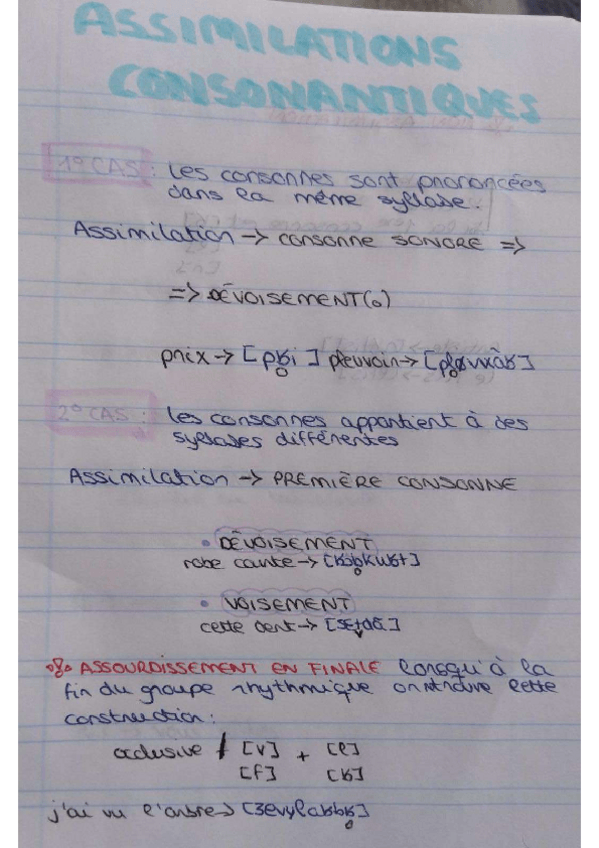 ASSIMILATIONS
CONSONANTIQUES
1º CAS : Les consonnes sont prononcées
dans la même syllabe.
Assimilation → consonne SONORE =>
=> DÉVOISEMENT(o)
prix → [pʁ̥i] pleuvoir →
2º CAS : Les consonnes appartient à des
syllabes différentes
Assimilation → PREMIÈRE CONSONNE
• DÉVOISEMENT
robe courte → [ʁɔb̥kuʁt]
• VOISEMENT
cette dent → [sɛt̬dɑ̃]
ASSOURDISSEMENT EN FINALE lorsqu'à la
fin du groupe rhythmique on trouve cette
construction:
occlusive / [v] + [l]
[f] [ʁ]
j'ai vu l'arbre → [ʒevylaʁbʁ̥]